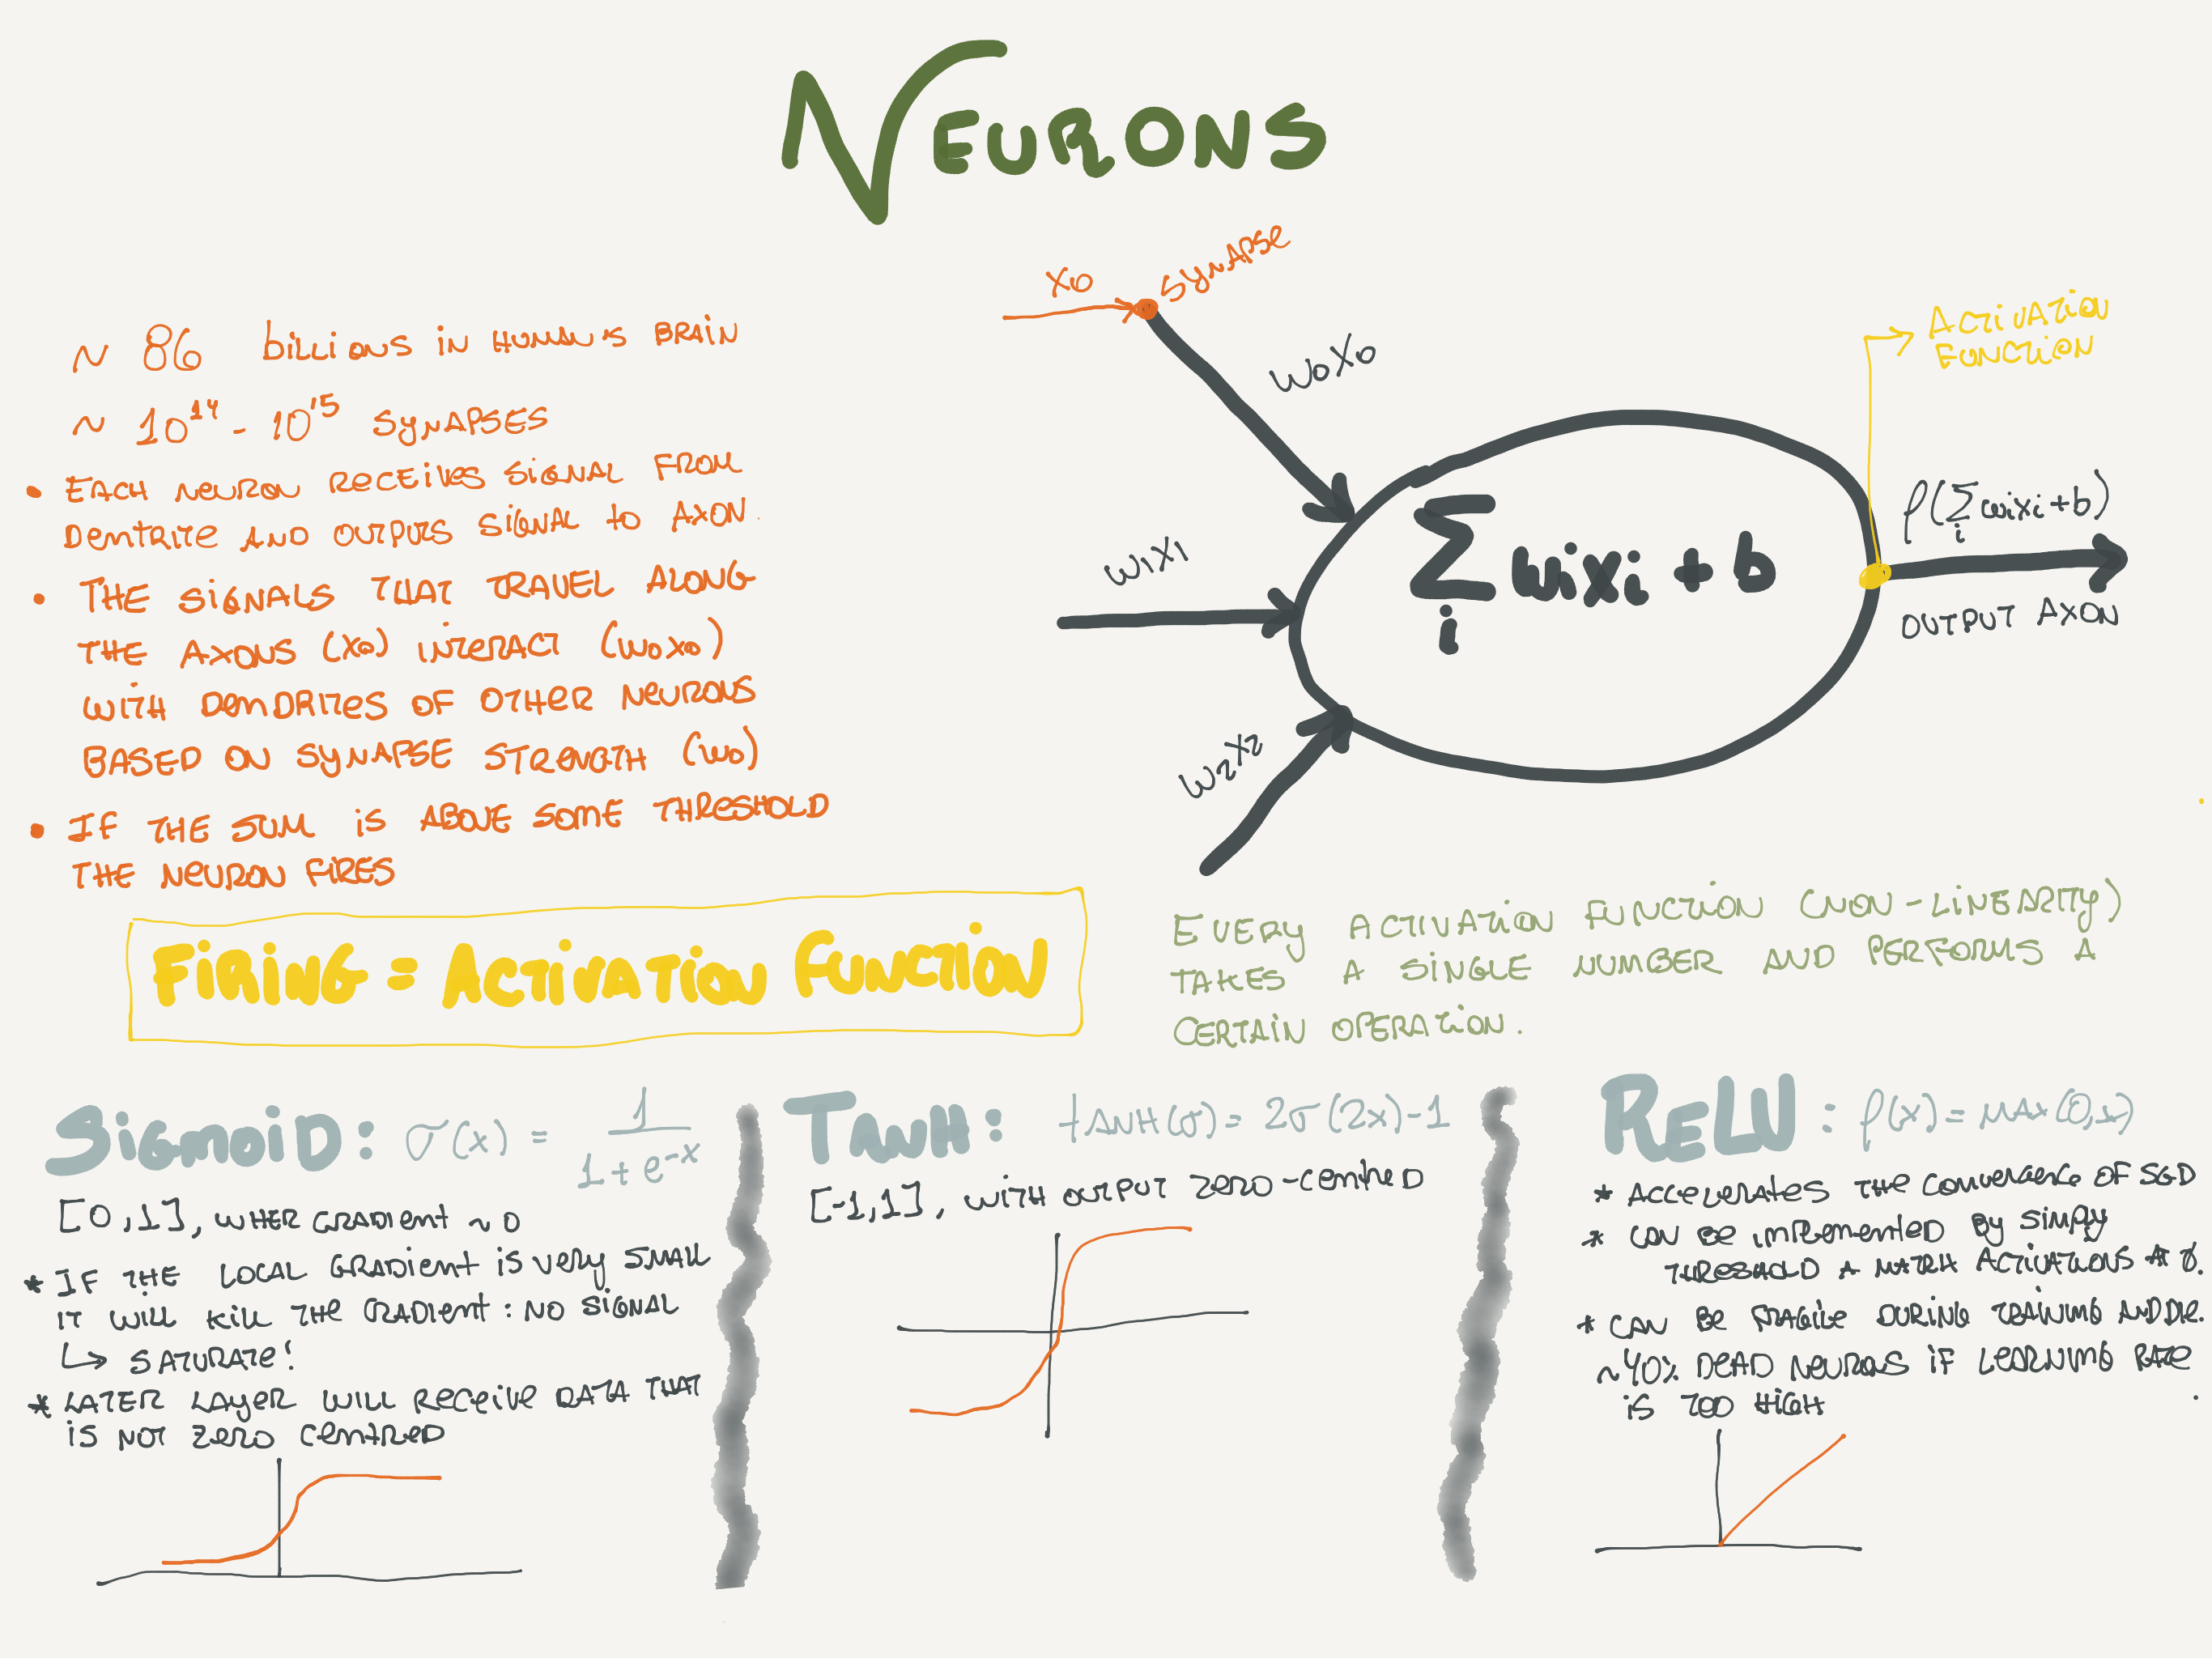 NEURONS
~ 86 billions in HUMAN'S BRAIN
~ 10¹⁴ - 10¹⁵ SYNAPSES
• EACH NEURON RECEIVES SIGNAL FROM
DENTRITE AND OUTPUTS SIGNAL to AXON.
• THE SIGNALS THAT TRAVEL ALONG
THE AXONS (X0) INTERACT (W0X0)
WITH DENDRITES OF OTHER NEURONS
BASED ON SYNAPSE STRENGTH (W0)
• IF THE SUM IS ABOVE SOME THRESHOLD
THE NEURON FIRES
X0
SYNAPSE
W0X0
W1X1
W2X2
Σ wixi + b
i
ACTIVATION
FUNCTION
f(Σ wixi + b)
i
OUTPUT AXON
FIRING = ACTIVATION FUNCTION
EVERY ACTIVATION FUNCTION (NON-LINEARITY)
TAKES A SINGLE NUMBER AND PERFORMS A
CERTAIN OPERATION.
SIGMOID: σ(x) = 1 / 1 + e^-x
[0,1], WHER GRADIENT ~ 0
* IF THE LOCAL GRADIENT IS VERY SMALL
IT WILL KILL THE GRADIENT: NO SIGNAL
↳ SATURATE!
* LATER LAYER WILL RECEIVE DATA THAT
IS NOT ZERO CENTRED
TANH: tANH(σ) = 2σ(2x)-1
[-1,1], WITH OUTPUT ZERO-CENTRED
RELU: f(x) = MAX(0,x)
* ACCELERATES THE CONVERGENCE OF SGD
* CAN BE IMPLEMENTED BY SIMPLY
THRESHOLD A ACTIVATIONS AT 0.
* CAN BE FRAGILE DURING TRAINING AND DIE.
~40% DEAD NEURONS IF LEARNING RATE
IS TOO HIGH